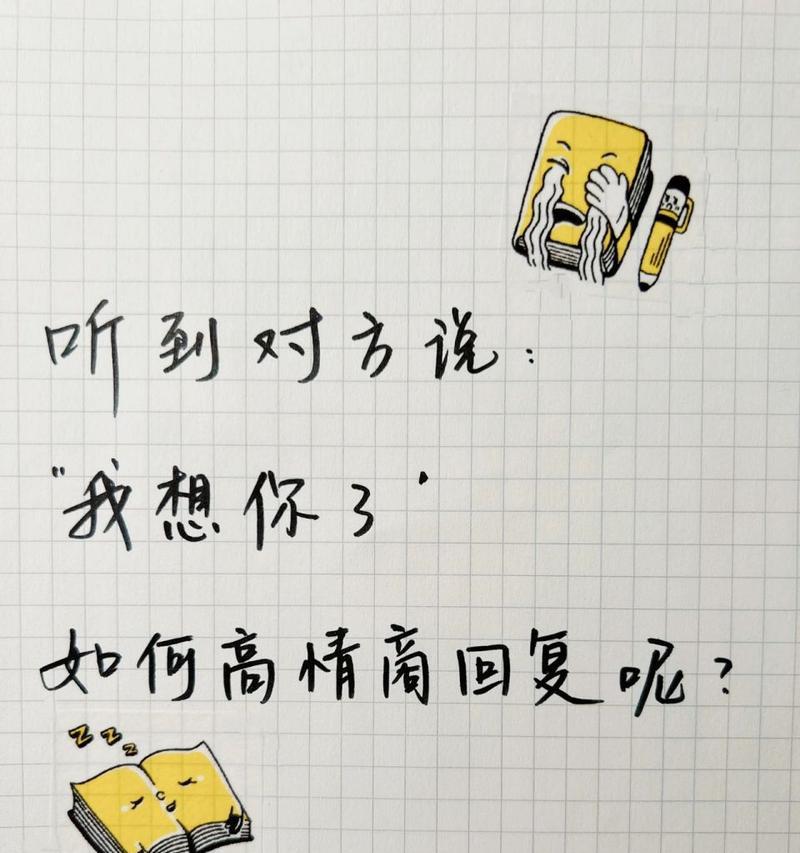 听到对方说：
“我想你了”
如何高情商回复呢？
zzz